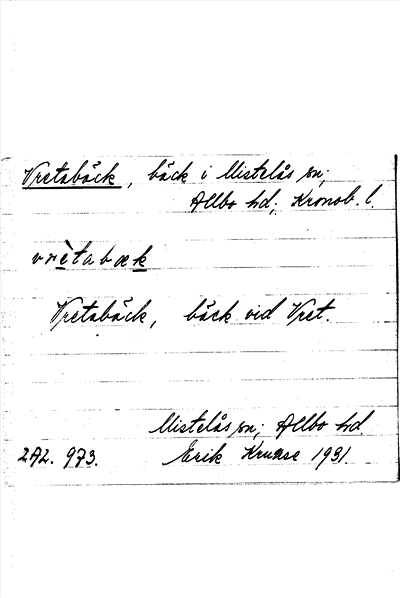 Vretabäck, bäck i Mistelås sn;
Allbo hd; Kronob. l.
vrètabæk
Vretabäck, bäck vid Vret.
Mistelås sn; Allbo hd.
2A2. 973. Erik Kruuse 1931.